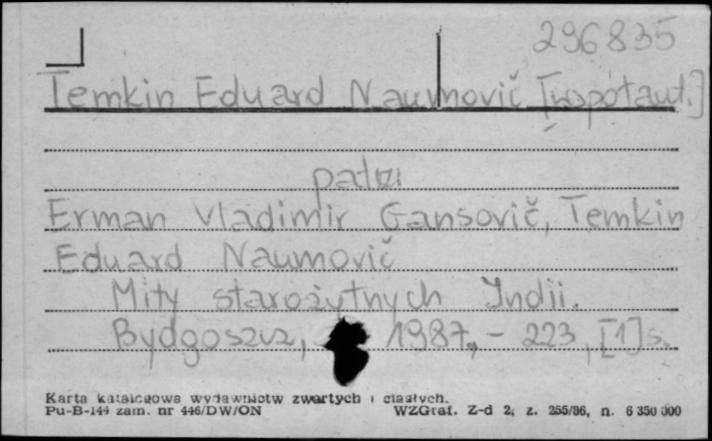 296835
Temkin Eduard Naumovič [współaut.]
patrz
Erman Vladimir Gansovič, Temkin
Eduard Naumovič
Mity starożytnych Indii.
Bydgoszcz, 1987, - 223, [1] s.
Karta katalogowa wydawnictw zwartych i ciągłych.
Pu-B-144 zam. nr 446/DW/ON WZGraf. Z-d 2, z. 255/86, n. 6 350 000